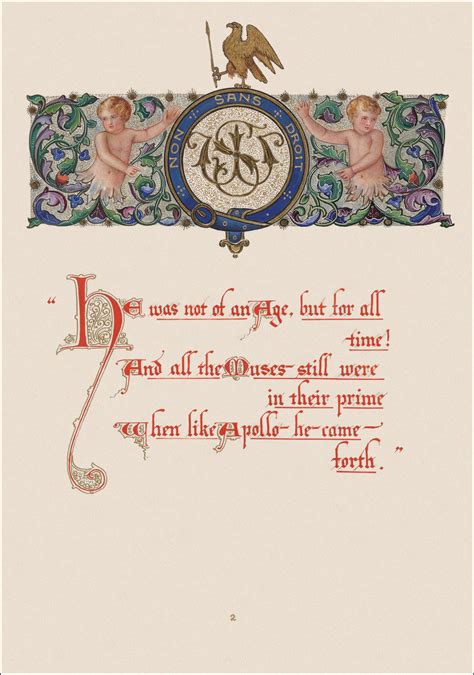 NON SANS DROIT
"He was not of an Age, but for all
time!
And all the Muses still were
in their prime
When like Apollo he came
forth."
2